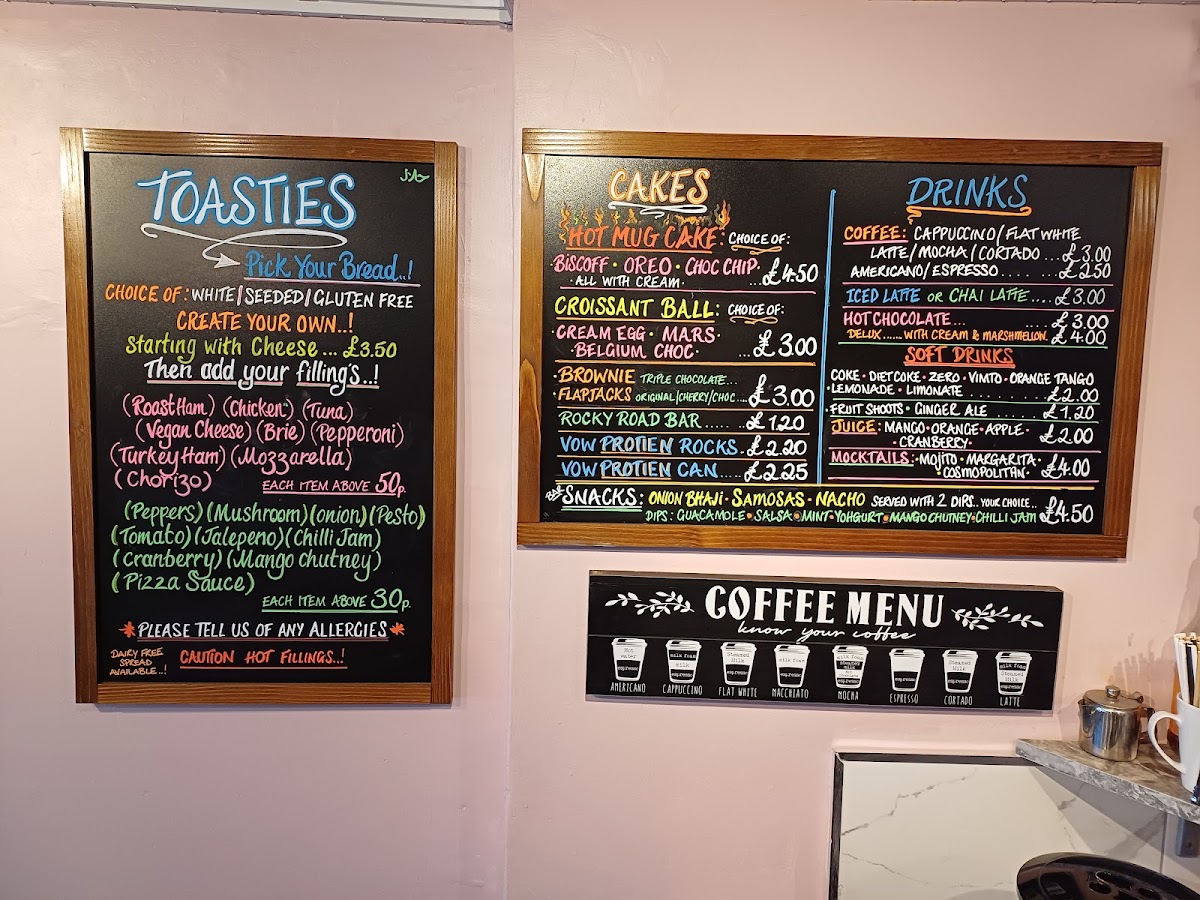 JAG
TOASTIES
Pick Your Bread..!
CHOICE OF: WHITE/SEEDED/GLUTEN FREE
CREATE YOUR OWN..!
Starting with Cheese ... £3.50
Then add your filling's..!
(Roast Ham) (Chicken) (Tuna)
(Vegan Cheese) (Brie) (Pepperoni)
(Turkey Ham) (Mozzarella)
(Chorizo)
EACH ITEM ABOVE 50p.
(Peppers) (Mushroom) (onion) (Pesto)
(Tomato) (Jalepeno) (Chilli Jam)
(Cranberry) (Mango Chutney)
(Pizza Sauce)
EACH ITEM ABOVE 30p.
PLEASE TELL US OF ANY ALLERGIES
DAIRY FREE
SPREAD
AVAILABLE..!
CAUTION HOT FILLINGS..!
CAKES
HOT MUG CAKE: CHOICE OF:
BISCOFF · OREO · CHOC CHIP·
ALL WITH CREAM. ... £4.50
CROISSANT BALL: CHOICE OF:
·CREAM EGG · MARS·
·BELGIUM CHOC· ... £3.00
·BROWNIE TRIPLE CHOCOLATE...
·FLAPJACKS ORIGINAL/CHERRY/CHOC.... £3.00
ROCKY ROAD BAR ..... £1.20
VOW PROTIEN ROCKS. £2.20
VOW PROTIEN CAN..... £2.25
DRINKS
COFFEE: CAPPUCCINO/FLAT WHITE
LATTE/MOCHA/CORTADO ... £3.00
AMERICANO/ESPRESSO ....... £2.50
ICED LATTE OR CHAI LATTE.... £3.00
HOT CHOCOLATE... ... £3.00
DELUX...... WITH CREAM & MARSHMELLON. £4.00
SOFT DRINKS
COKE · DIET COKE · ZERO · VIMTO · ORANGE TANGO
·LEMONADE · LIMONATE ......... £2.00
·FRUIT SHOOTS · GINGER ALE ...... £1.20
JUICE: MANGO·ORANGE·APPLE·
·CRANBERRY· £2.00
MOCKTAILS:·MOJITO·MARGARITA·
·COSMOPOLITAN· £4.00
SNACKS: ONION BHAJI · SAMOSAS · NACHO SERVED WITH 2 DIPS.. YOUR CHOICE..
DIPS: GUACAMOLE · SALSA · MINT · YOHGURT · MANGO CHUTNEY · CHILLI JAM £4.50
COFFEE MENU
know your coffee
Hot
water
espresso
AMERICANO
milk foam
milk
espresso
CAPPUCCINO
Steamed
Milk
espresso
FLAT WHITE
milk foam
espresso
MACCHIATO
milk foam
Steamed
milk
espresso
MOCHA
espresso
ESPRESSO
Steamed
Milk
espresso
CORTADO
milk foam
Steamed
Milk
espresso
LATTE